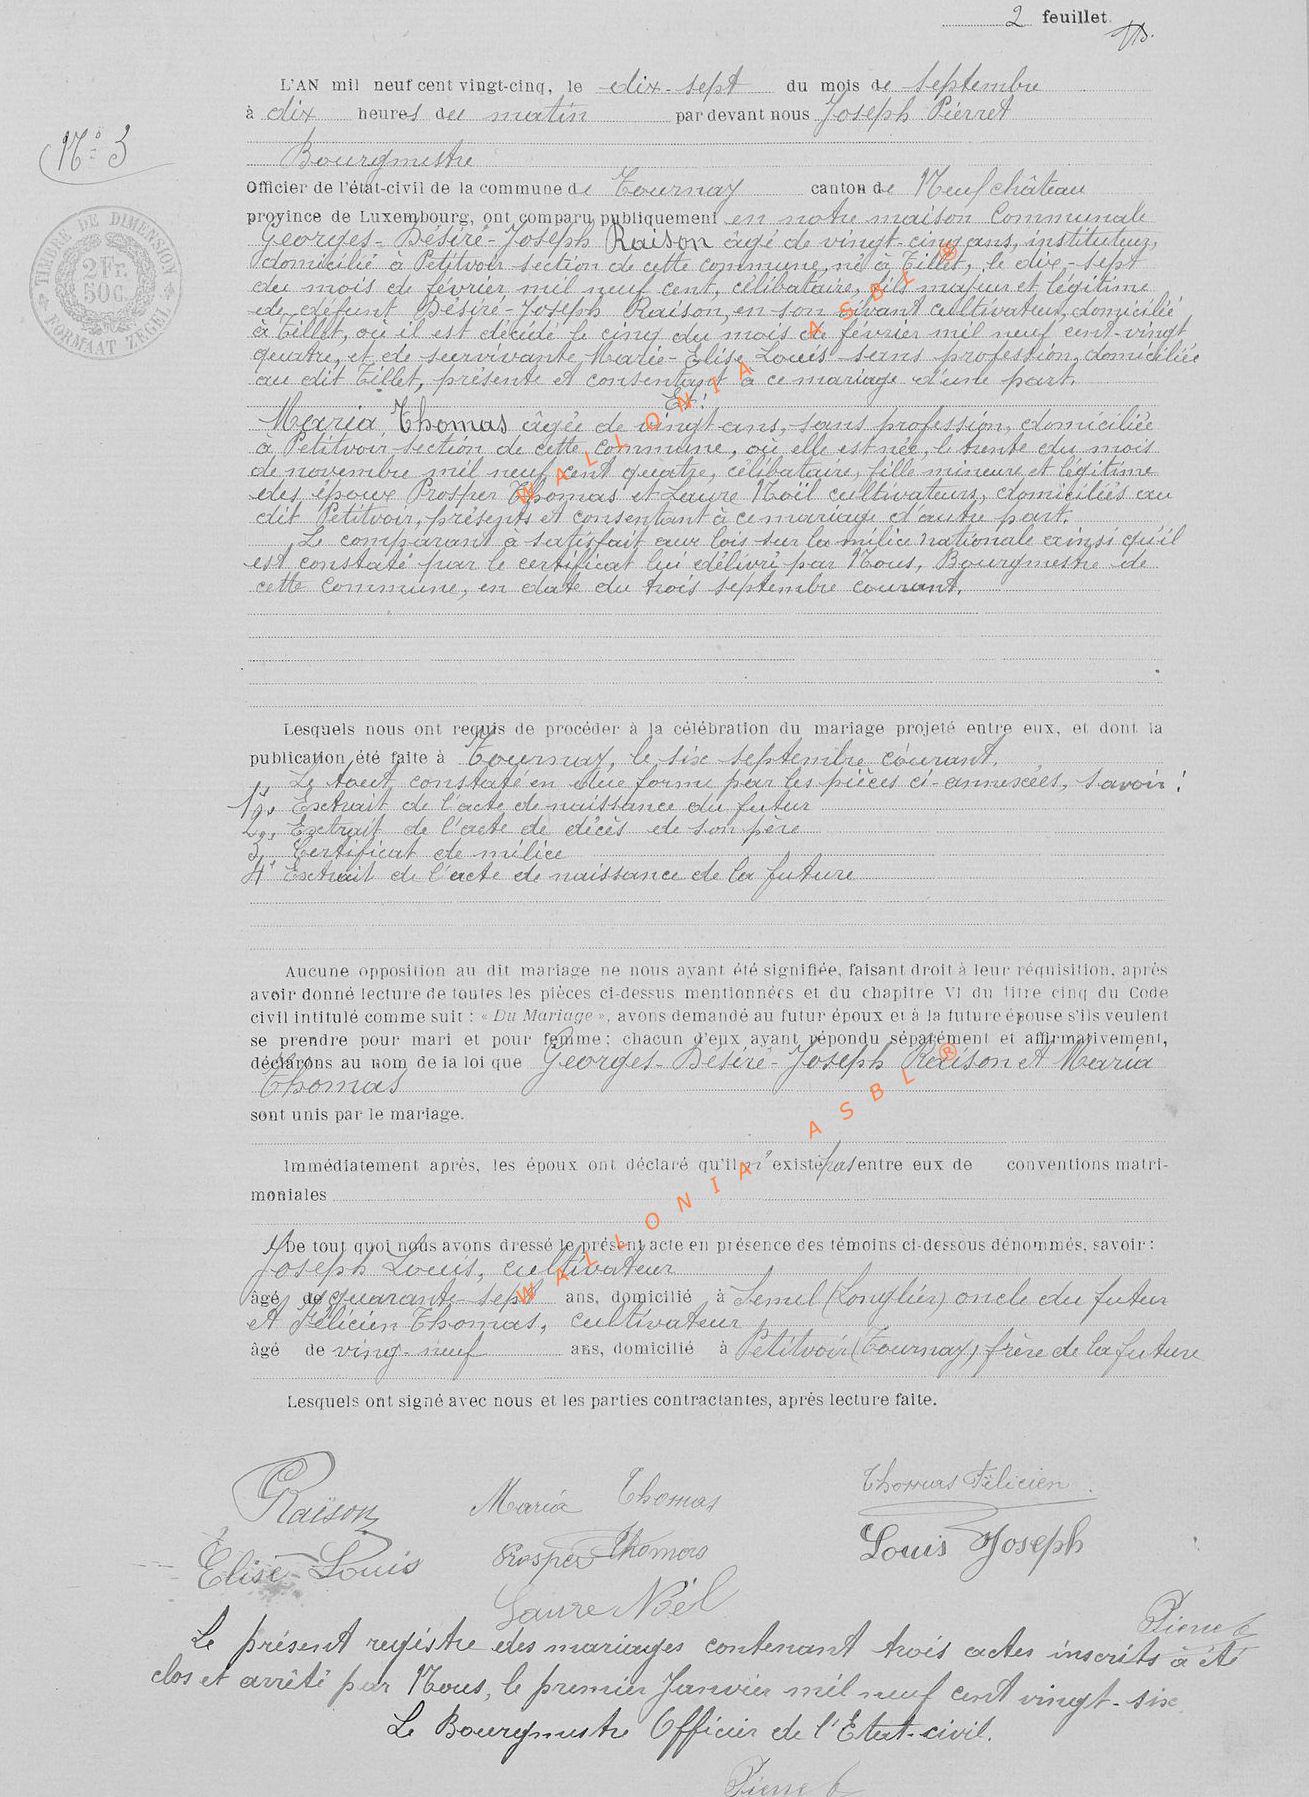 2 feuillet.
L'AN mil neuf cent vingt-cinq, le dix-sept du mois de septembre
à dix heures du matin par devant nous Joseph Pierret
N° 3
Bourgmestre
Officier de l'état-civil de la commune de Tournay canton de Neufchâteau
province de Luxembourg, ont comparu publiquement en notre maison Communale
Georges-Désiré-Joseph Raison âgé de vingt-cinq ans, instituteur,
domicilié à Petitvoir section de cette commune, né à Tillet, le dix-sept
du mois de février mil neuf cent, célibataire, fils majeur et légitime
de défunt Désiré-Joseph Raison, en son vivant cultivateur, domicilié
à Tillet, où il est décédé le cinq du mois de février mil neuf cent-vingt
quatre, et de survivante Marie-Elise Louis sans profession, domiciliée
au dit Tillet, présente et consentant à ce mariage d'une part.
Et :
Maria Thomas âgée de vingt ans, sans profession, domiciliée
à Petitvoir section de cette commune, où elle est née, le trente du mois
de novembre mil neuf cent quatre, célibataire, fille mineure et légitime
des époux Prosper Thomas et Laure Noël cultivateurs, domiciliés au
dit Petitvoir, présents et consentant à ce mariage d'autre part.
Le comparant à satisfait aux lois sur la milice nationale ainsi qu'il
est constaté par le certificat lui délivré par Nous, Bourgmestre de
cette commune, en date du trois septembre courant.
TIMBRE DE DIMENSION
2 Fr.
50 C.
FORMAAT ZEGEL
Lesquels nous ont requis de procéder à la célébration du mariage projeté entre eux, et dont la
publication été faite à Tournay, le six septembre courant.
Le tout constaté en due forme par les pièces ci-annexées, savoir :
1°. Extrait de l'acte de naissance du futur
2°. Extrait de l'acte de décès de son père
3. Certificat de milice
4. Extrait de l'acte de naissance de la future
Aucune opposition au dit mariage ne nous ayant été signifiée, faisant droit à leur réquisition, après
avoir donné lecture de toutes les pièces ci-dessus mentionnées et du chapitre VI du titre cinq du Code
civil intitulé comme suit : « Du Mariage », avons demandé au futur époux et à la future épouse s'ils veulent
se prendre pour mari et pour femme ; chacun d'eux ayant répondu séparément et affirmativement,
déclarons au nom de la loi que Georges-Désiré-Joseph Raison et Maria
Thomas
sont unis par le mariage.
Immédiatement après, les époux ont déclaré qu'il n'existe pas entre eux de conventions matri-
moniales
De tout quoi nous avons dressé le présent acte en présence des témoins ci-dessous dénommés, savoir :
Joseph Louis, cultivateur
âgé de quarante-sept ans, domicilié à Semel (Longlier) oncle du futur
et Félicien Thomas, cultivateur
âgé de ving-neuf ans, domicilié à Petitvoir (Tournay) frère de la future
Lesquels ont signé avec nous et les parties contractantes, après lecture faite.
GRaison Maria Thomas Thomas Félicien
Elise Louis Prosper Thomas Louis Joseph
Laure Noël
Le présent registre des mariages contenant trois actes inscrits à été
clos et arrêté par Nous, le premier Janvier mil neuf cent vingt-six
Le Bourgmestre Officier de l'Etat-civil.
WALLONIA ASBL ®
WALLONIA ASBL ®